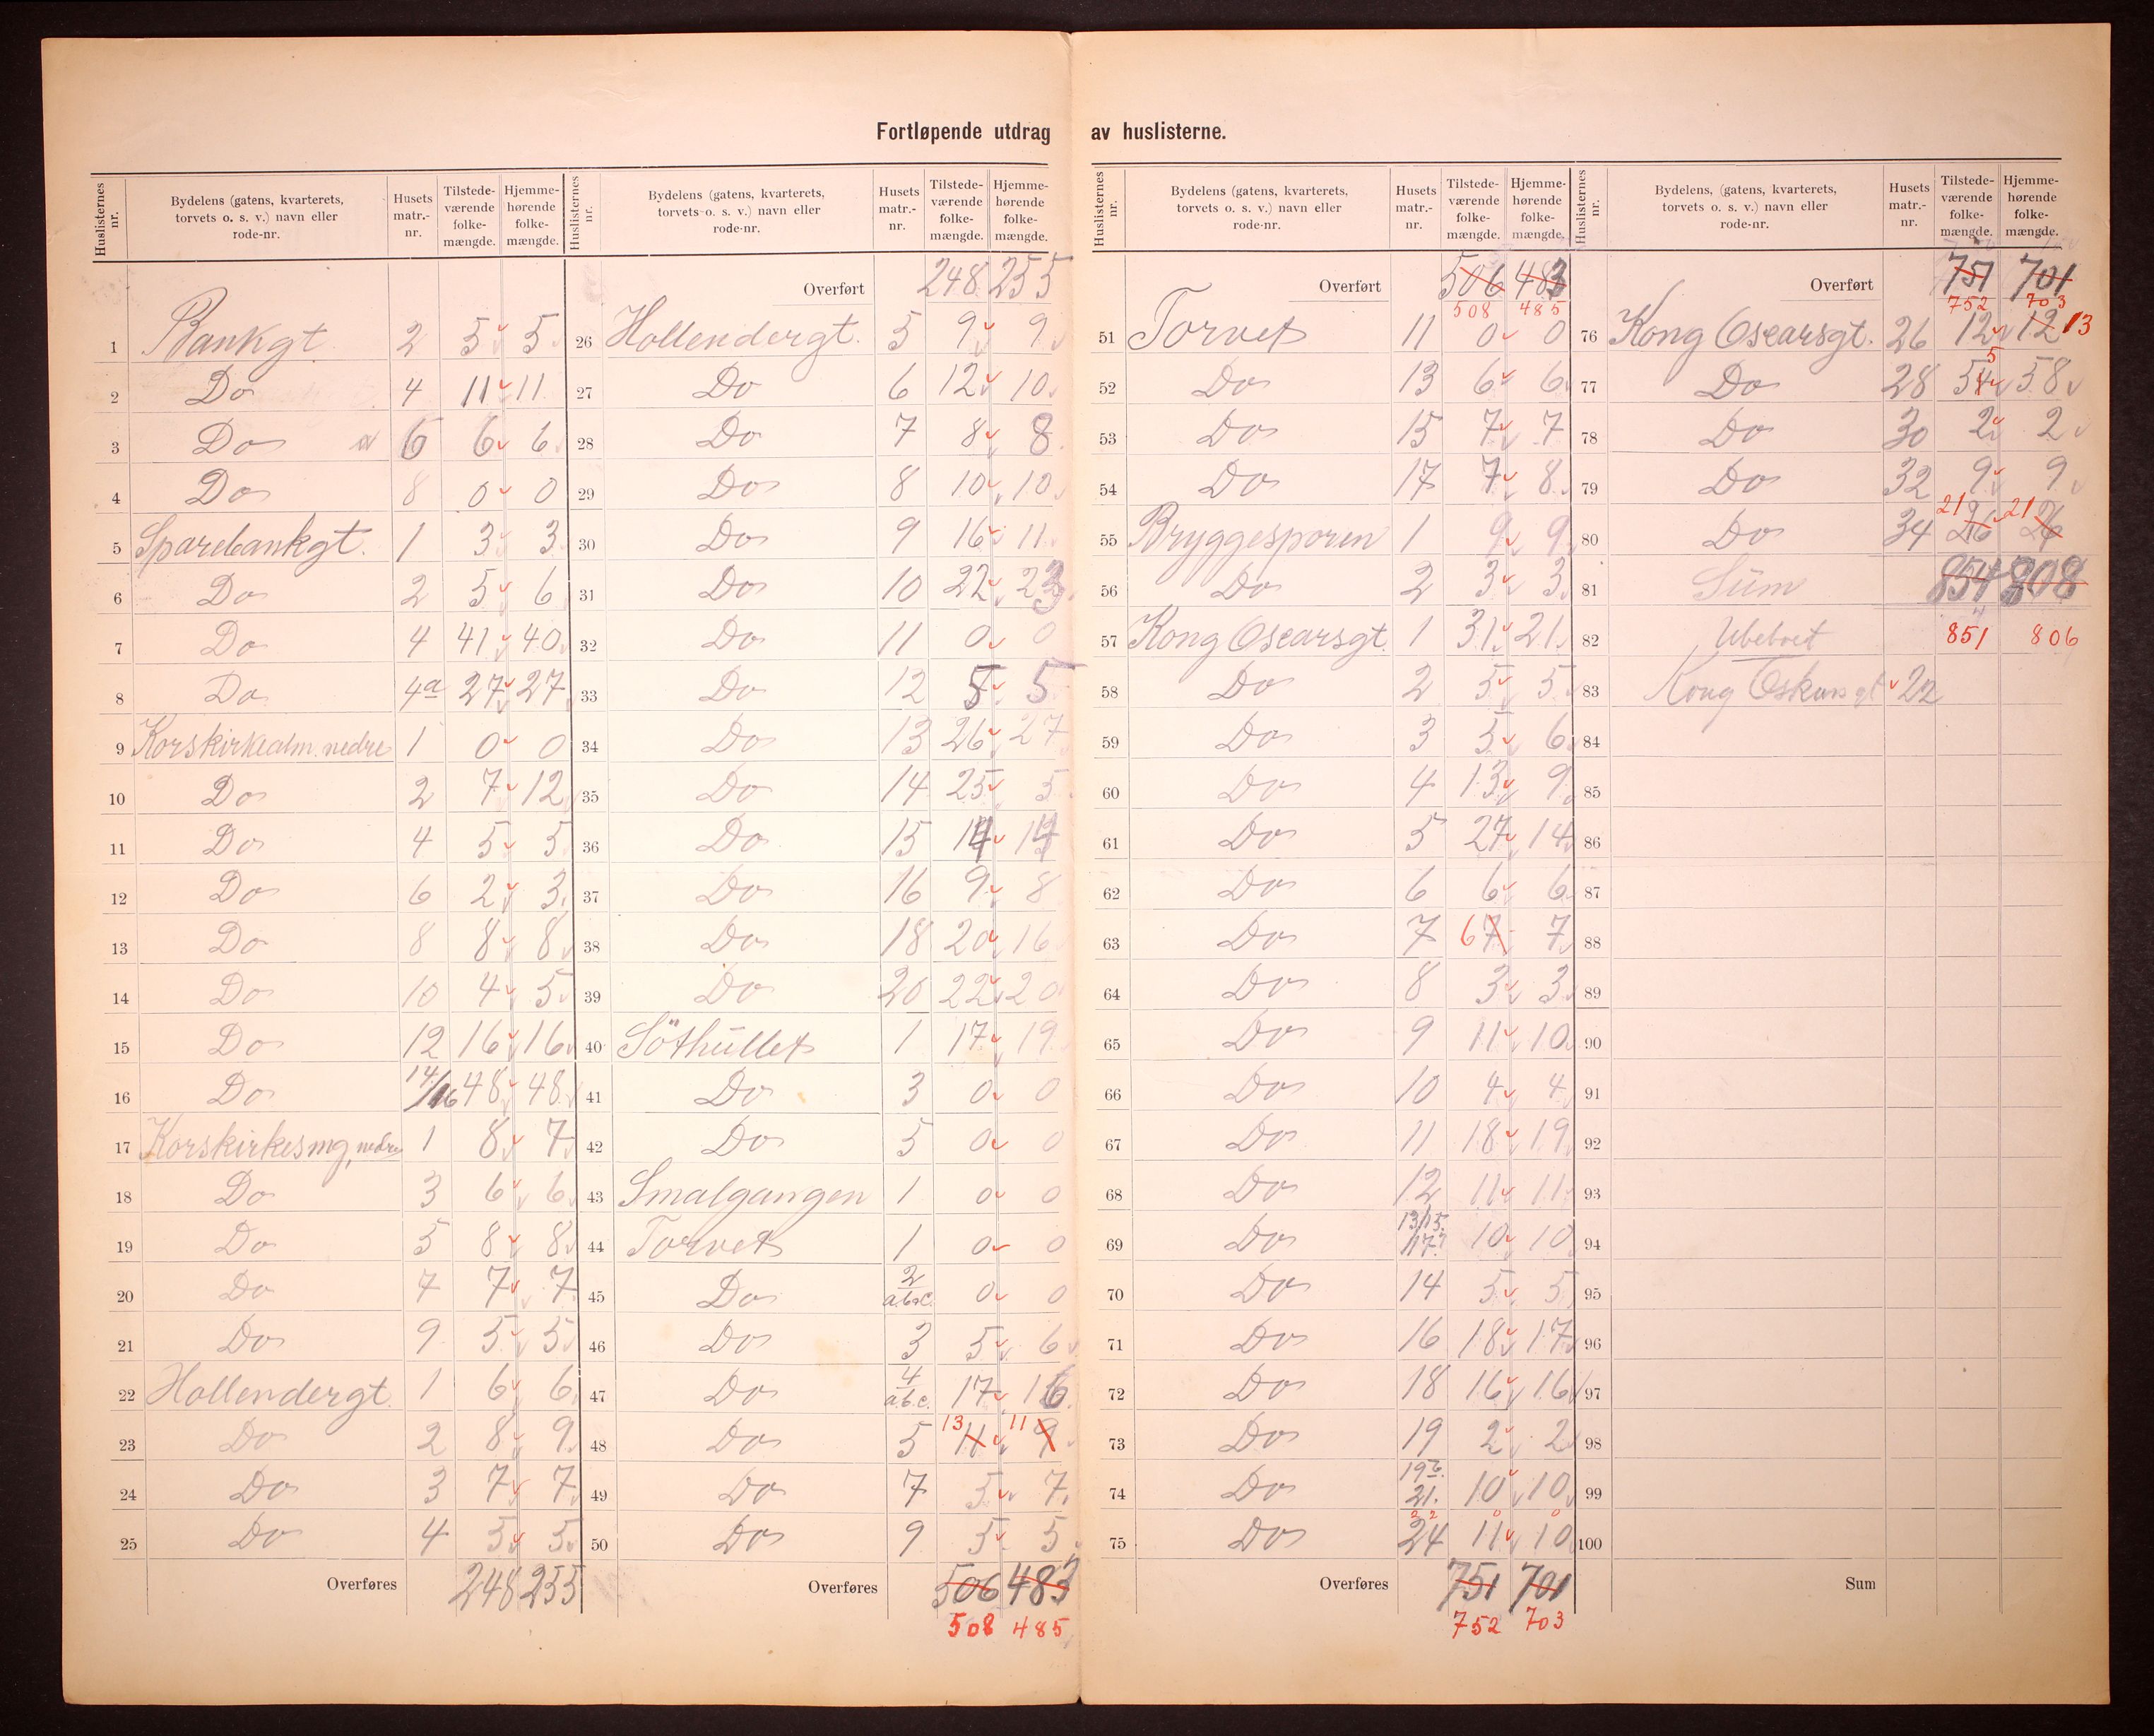 Fortløpende utdrag av huslisterne.
Huslisternes nr. | Bydelens (gatens, kvarterets, torvets o. s. v.) navn eller rode-nr. | Husets matr.-nr. | Tilstede-værende folke-mængde. | Hjemme-hørende folke-mængde.
1 Bankgt. 2 5 5
2 Do 4 11 11
3 Do 6 6 6
4 Do 8 0 0
5 Sparebankgt. 1 3 3
6 Do 2 5 6
7 Do 4 41 40
8 Do 4a 27 27
9 Korskirkealm. nedre 1 0 0
10 Do 2 7 12
11 Do 4 5 5
12 Do 6 2 3
13 Do 8 8 8
14 Do 10 4 5
15 Do 12 16 16
16 Do 14/16 48 48
17 Korskirkesmg, nedre 1 8 7
18 Do 3 6 6
19 Do 5 8 8
20 Do 7 7 7
21 Do 9 5 5
22 Hollendergt. 1 6 6
23 Do 2 8 9
24 Do 3 7 7
25 Do 4 5 5
Overføres 248 255
Huslisternes nr. | Bydelens (gatens, kvarterets, torvets o. s. v.) navn eller rode-nr. | Husets matr.-nr. | Tilstede-værende folke-mængde. | Hjemme-hørende folke-mængde.
Overført 248 255
26 Hollendergt. 5 9 9
27 Do 6 12 10
28 Do 7 8 8
29 Do 8 10 10
30 Do 9 16 11
31 Do 10 22 23
32 Do 11 0 0
33 Do 12 5 5
34 Do 13 26 27
35 Do 14 25 5
36 Do 15 14 14
37 Do 16 9 8
38 Do 18 20 16
39 Do 20 22 20
40 Söthullet 1 17 19
41 Do 3 0 0
42 Do 5 0 0
43 Smalgangen 1 0 0
44 Torvet 1 0 0
45 Do 2 a.b.c. 0 0
46 Do 3 5 6
47 Do 4 a.b.c. 17 16
48 Do 5 13 11 11 9
49 Do 7 5 7
50 Do 9 5 5
Overføres 506 483
508 485
Huslisternes nr. | Bydelens (gatens, kvarterets, torvets o. s. v.) navn eller rode-nr. | Husets matr.-nr. | Tilstede-værende folke-mængde. | Hjemme-hørende folke-mængde.
Overført 506 483
508 485
51 Torvet 11 0 0
52 Do 13 6 6
53 Do 15 7 7
54 Do 17 7 8
55 Bryggesporen 1 9 9
56 Do 2 3 3
57 Kong Oscarsgt. 1 31 21
58 Do 2 5 5
59 Do 3 5 6
60 Do 4 13 9
61 Do 5 27 14
62 Do 6 6 6
63 Do 7 6 7 7
64 Do 8 3 3
65 Do 9 11 10
66 Do 10 4 4
67 Do 11 18 19
68 Do 12 11 11
69 Do 13/15/17 10 10
70 Do 14 5 5
71 Do 16 18 17
72 Do 18 16 16
73 Do 19 2 2
74 Do 19b. 21. 10 10
75 Do 22 24 11 0 10 0
Overføres 751 701
752 703
Huslisternes nr. | Bydelens (gatens, kvarterets, torvets o. s. v.) navn eller rode-nr. | Husets matr.-nr. | Tilstede-værende folke-mængde. | Hjemme-hørende folke-mængde.
Overført 751 701
752 703
76 Kong Oscarsgt. 26 12 12 13
77 Do 28 54 5 58
78 Do 30 2 2
79 Do 32 9 9
80 Do 34 21 26 21 26
81 Süm 854 808
82 Ubeboet 851 806
83 Kong Oskarsgt 22
84
85
86
87
88
89
90
91
92
93
94
95
96
97
98
99
100
Sum